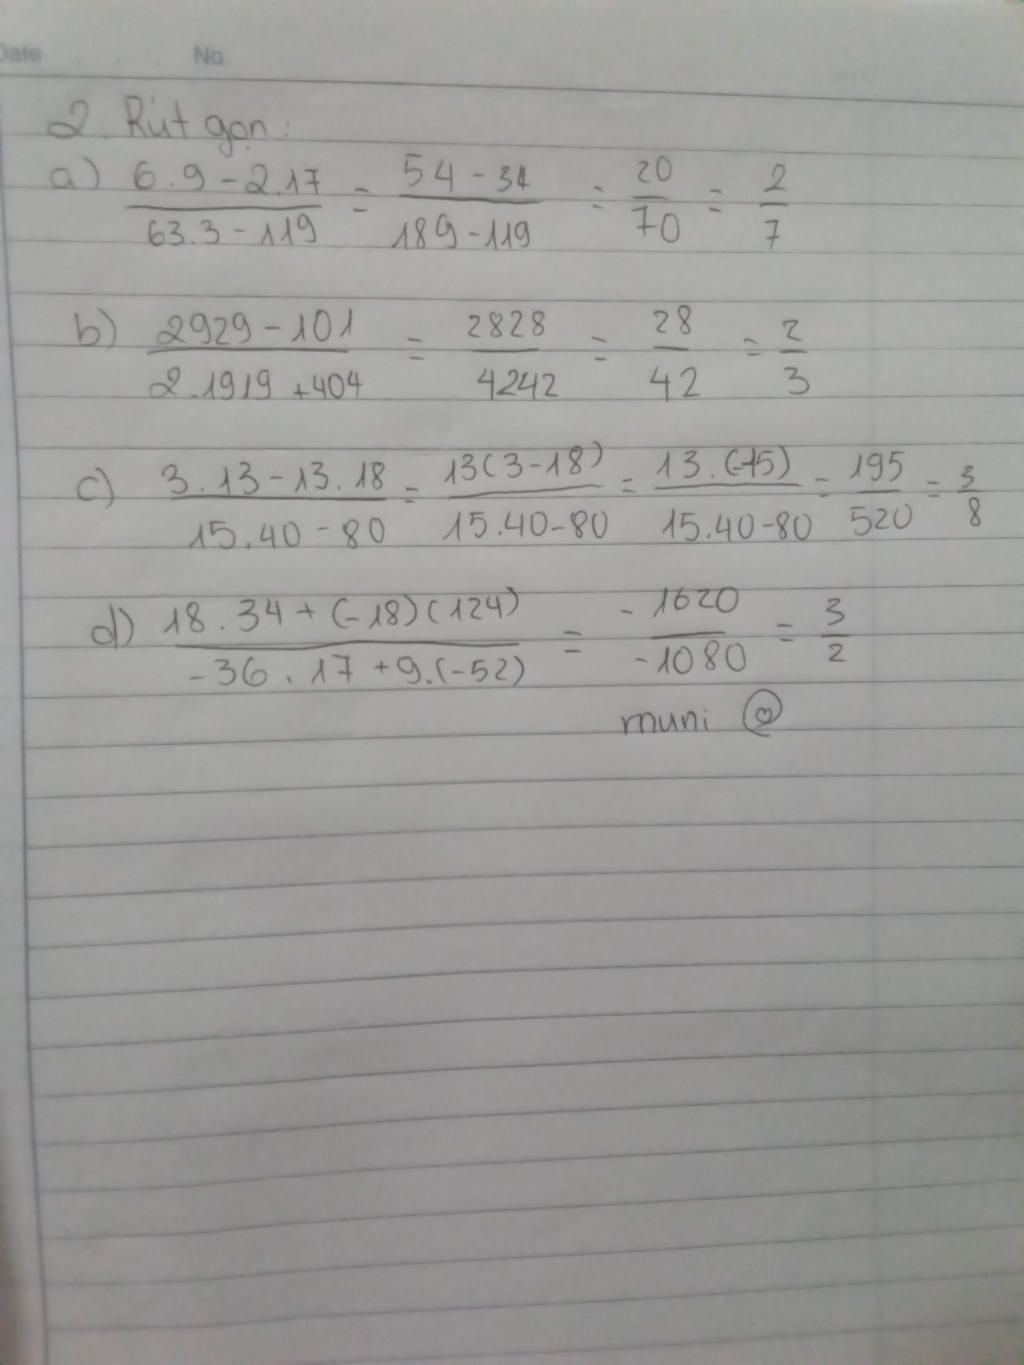 Date No.
2. Rút gọn:
a) 6.9-2.17 / 63.3-119 = 54-34 / 189-119 = 20/70 = 2/7
b) 2929-101 / 2.1919+404 = 2828/4242 = 28/42 = 2/3
c) 3.13-13.18 / 15.40-80 = 13(3-18) / 15.40-80 = 13.(-15) / 15.40-80 = 195/520 = 3/8
d) 18.34+(-18)(124) / -36.17+9.(-52) = -1620/-1080 = 3/2
muni